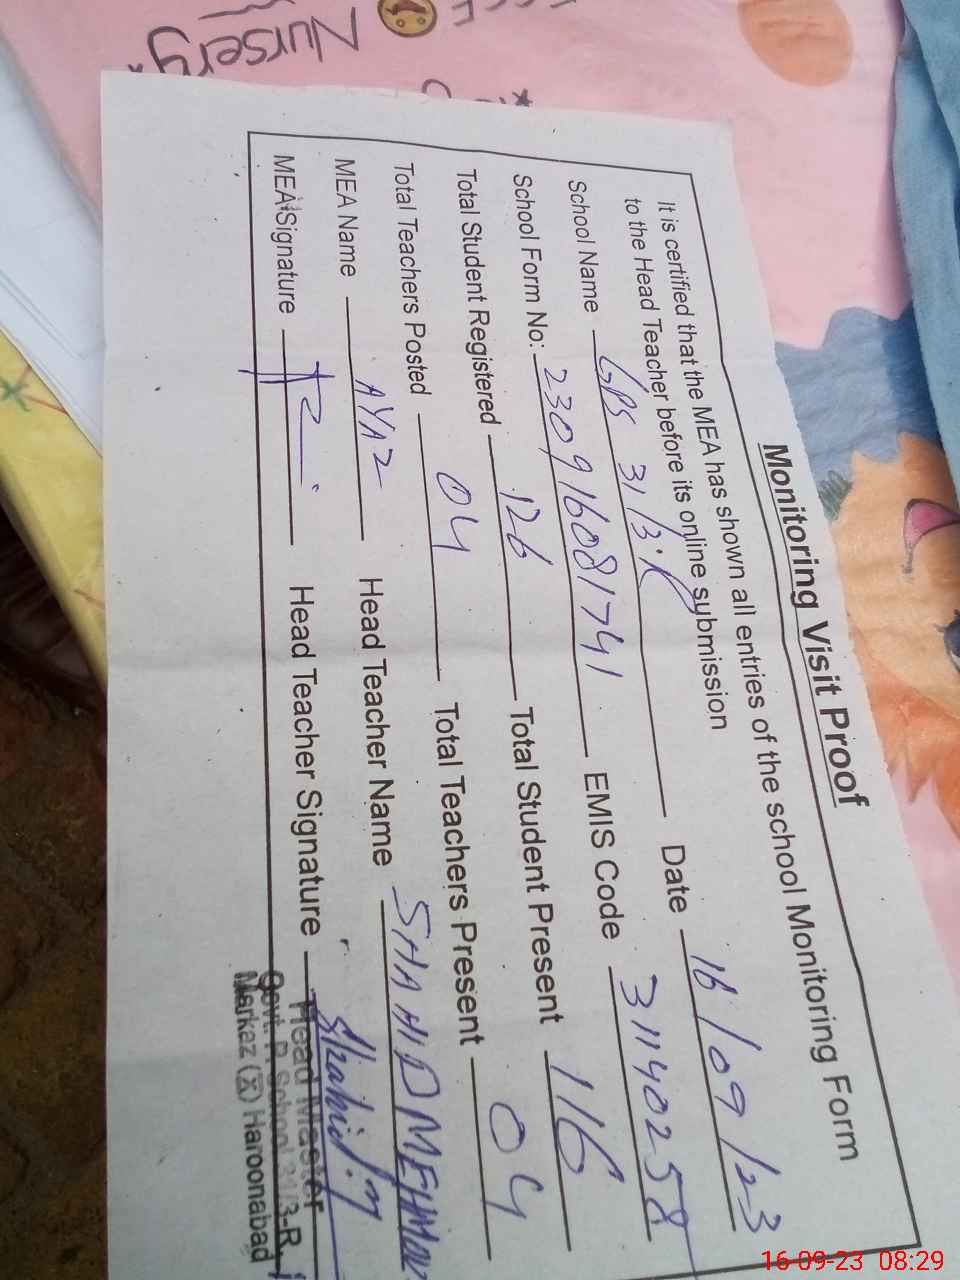 Nursery
Monitoring Visit Proof
It is certified that the MEA has shown all entries of the school Monitoring Form
to the Head Teacher before its online submission
School Name GPS 31/3.R Date 16/09/23
School Form No: 230916081741 EMIS Code 31140258
Total Student Registered 126 Total Student Present 116
Total Teachers Posted 04 Total Teachers Present 04
MEA Name AYAZ Head Teacher Name SHAHID MEHMOOD
MEA Signature Head Teacher Signature Shahid.M
Head Master
Govt. P School 31/3-R
Markaz (X) Haroonabad
16-09-23 08:29